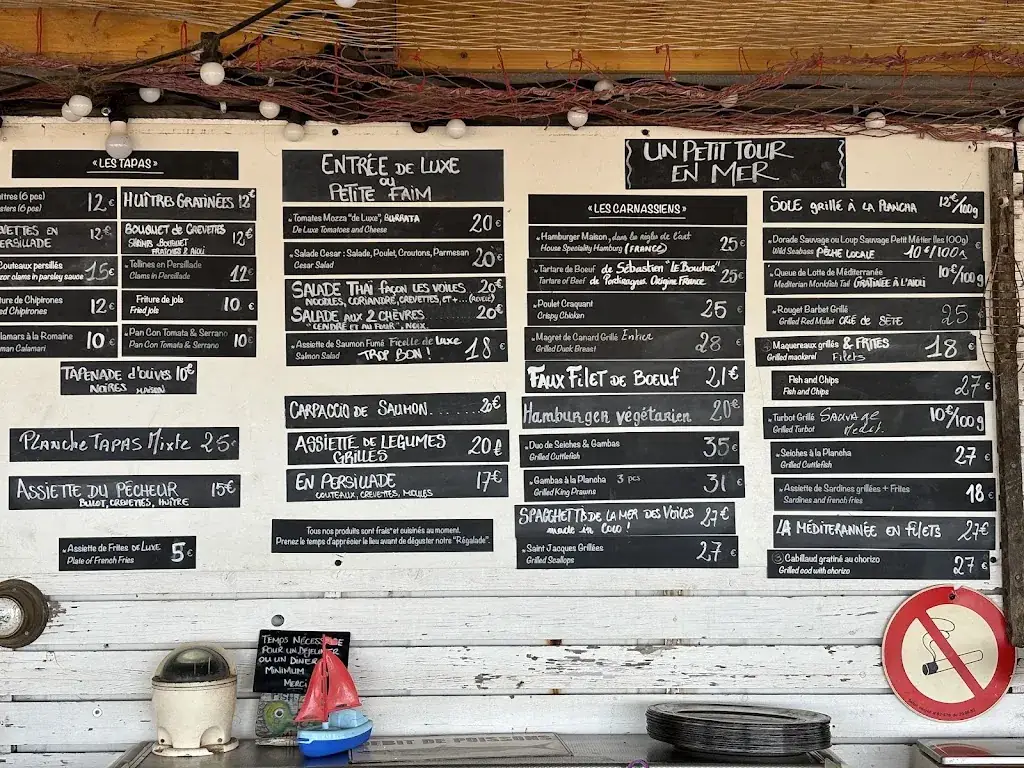 « LES TAPAS »
12 €
12 €
PERSILLADE
Couteaux persillés
15 €
razor clams in parsley sauce
Chipirones
12 €
Chipirones
à la Romaine
10 €
Roman Calamari
HUÎTRES GRATINÉES 12€
BOUQUET DE CREVETTES
12 €
SHRIMPS BOUQUET
FRAÎCHES & AÏOLI
Tellines en Persillade
12 €
Clams in Persillade
Friture de jols
10 €
Fried jols
Pan Con Tomata & Serrano
10 €
Pan Con Tomata & Serrano
TAPENADE D'OLIVES 10€
NOIRES MAISON
PLANCHE TAPAS MIXTE 25 €
ASSIETTE DU PÊCHEUR 15€
BULOT, CREVETTES, HUÎTRE
Assiette de Frites DE LUXE 5 €
Plate of French Fries
ENTRÉE DE LUXE
OU
PETITE FAIM
Tomates Mozza "de Luxe", BURRATA 20 €
De Luxe Tomatoes and Cheese
Salade Cesar : Salade, Poulet, Croutons, Parmesan 20 €
Cesar Salad
SALADE THAÏ FAÇON LES VOILES 20€
NOODLES, CORIANDRE, CREVETTES, ET +...
SALADE AUX 2 CHÈVRES 20€
"CENDRÉ ET AU FOUR", NOIX.
Assiette de Saumon Fumé Ficelle de Luxe 18 €
Salmon Salad TROP BON !
CARPACCIO DE SAUMON......... 20€
ASSIETTE DE LÉGUMES 20€
GRILLÉS
EN PERSILLADE 17€
COUTEAUX, CREVETTES, MOULES
Tous nos produits sont frais* et cuisinés au moment.
Prenez le temps d'apprécier le lieu avant de déguster notre "Régalade".
UN PETIT TOUR
EN MER
« LES CARNASSIENS »
Hamburger Maison, dans les règles de l'art 25 €
House Speciality Hamburg (FRANCE)
Tartare de Boeuf de Sébastien "LE Boucher" 25€
Tartare of Beef Origine FRANCE
Poulet Craquant 25 €
Crispy Chicken
Magret de Canard Grillé Entier 28 €
Grilled Duck Breast
FAUX FILET DE BOEUF 21€
Hamburger végétarien 20€
Duo de Seiches & Gambas 35 €
Grilled Cuttlefish
Gambas à la Plancha 3 pcs 31 €
Grilled King Prawns
SPAGHETTIS DE LA MER DES VOILES 27€
made in Coco !
Saint Jacques Grillées 27 €
Grilled Scallops
SOLE grillé À LA PLANCHA 12€/100g
Dorade Sauvage ou Loup Sauvage Petit Métier (les 100g)
Wild Seabass PÊCHE LOCALE 10€/100g
Queue de Lotte de Méditerranée 10€/100g
Mediterian Monkfish Tail GRATINÉE À L'AÏOLI
Rouget Barbet Grillé 25 €
Grilled Red Mullet CRIÉ DE SÈTE
Maquereaux grillés & FRITES 18 €
Grilled mackarel Filets
Fish and Chips 27 €
Fish and Chips
Turbot Grillé SAUVAGE 10€/100g
Grilled Turbot
Seiches à la Plancha 27 €
Grilled Cuttlefish
Assiette de Sardines grillées + Frites 18 €
Sardines and french fries
LA MÉDITERANNÉE EN FILETS 27€
Cabillaud gratiné au chorizo 27 €
Grilled cod with chorizo
TEMPS NÉCESSAIRE
POUR UN DÉJEUNER
OU UN DÎNER
MINIMUM
MERCI